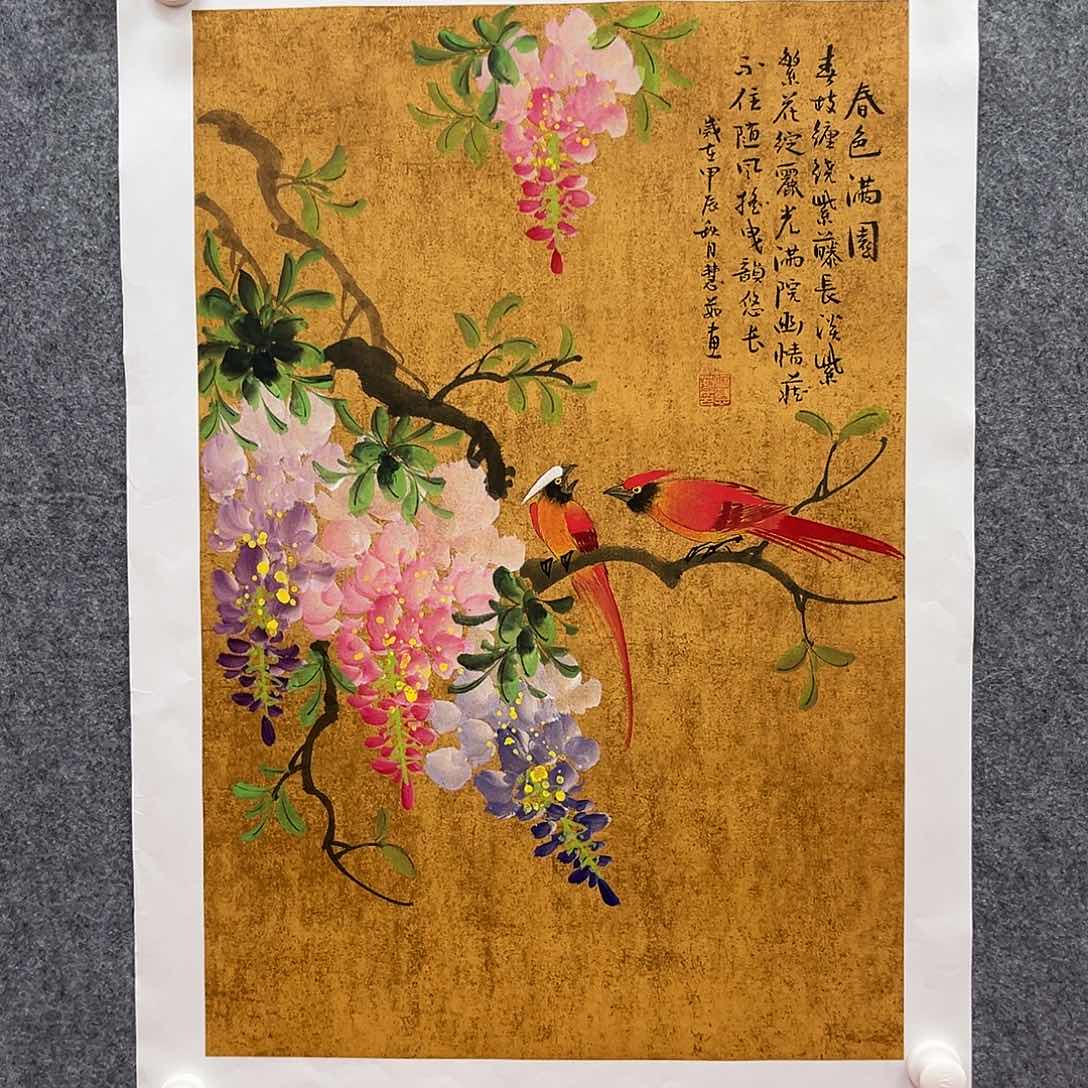 春色满園
春枝纏绕紫藤長淡紫
繁花綻麗光满院幽情藏
不住随风摇曳韻悠长
岁在甲辰秋月慧茹画